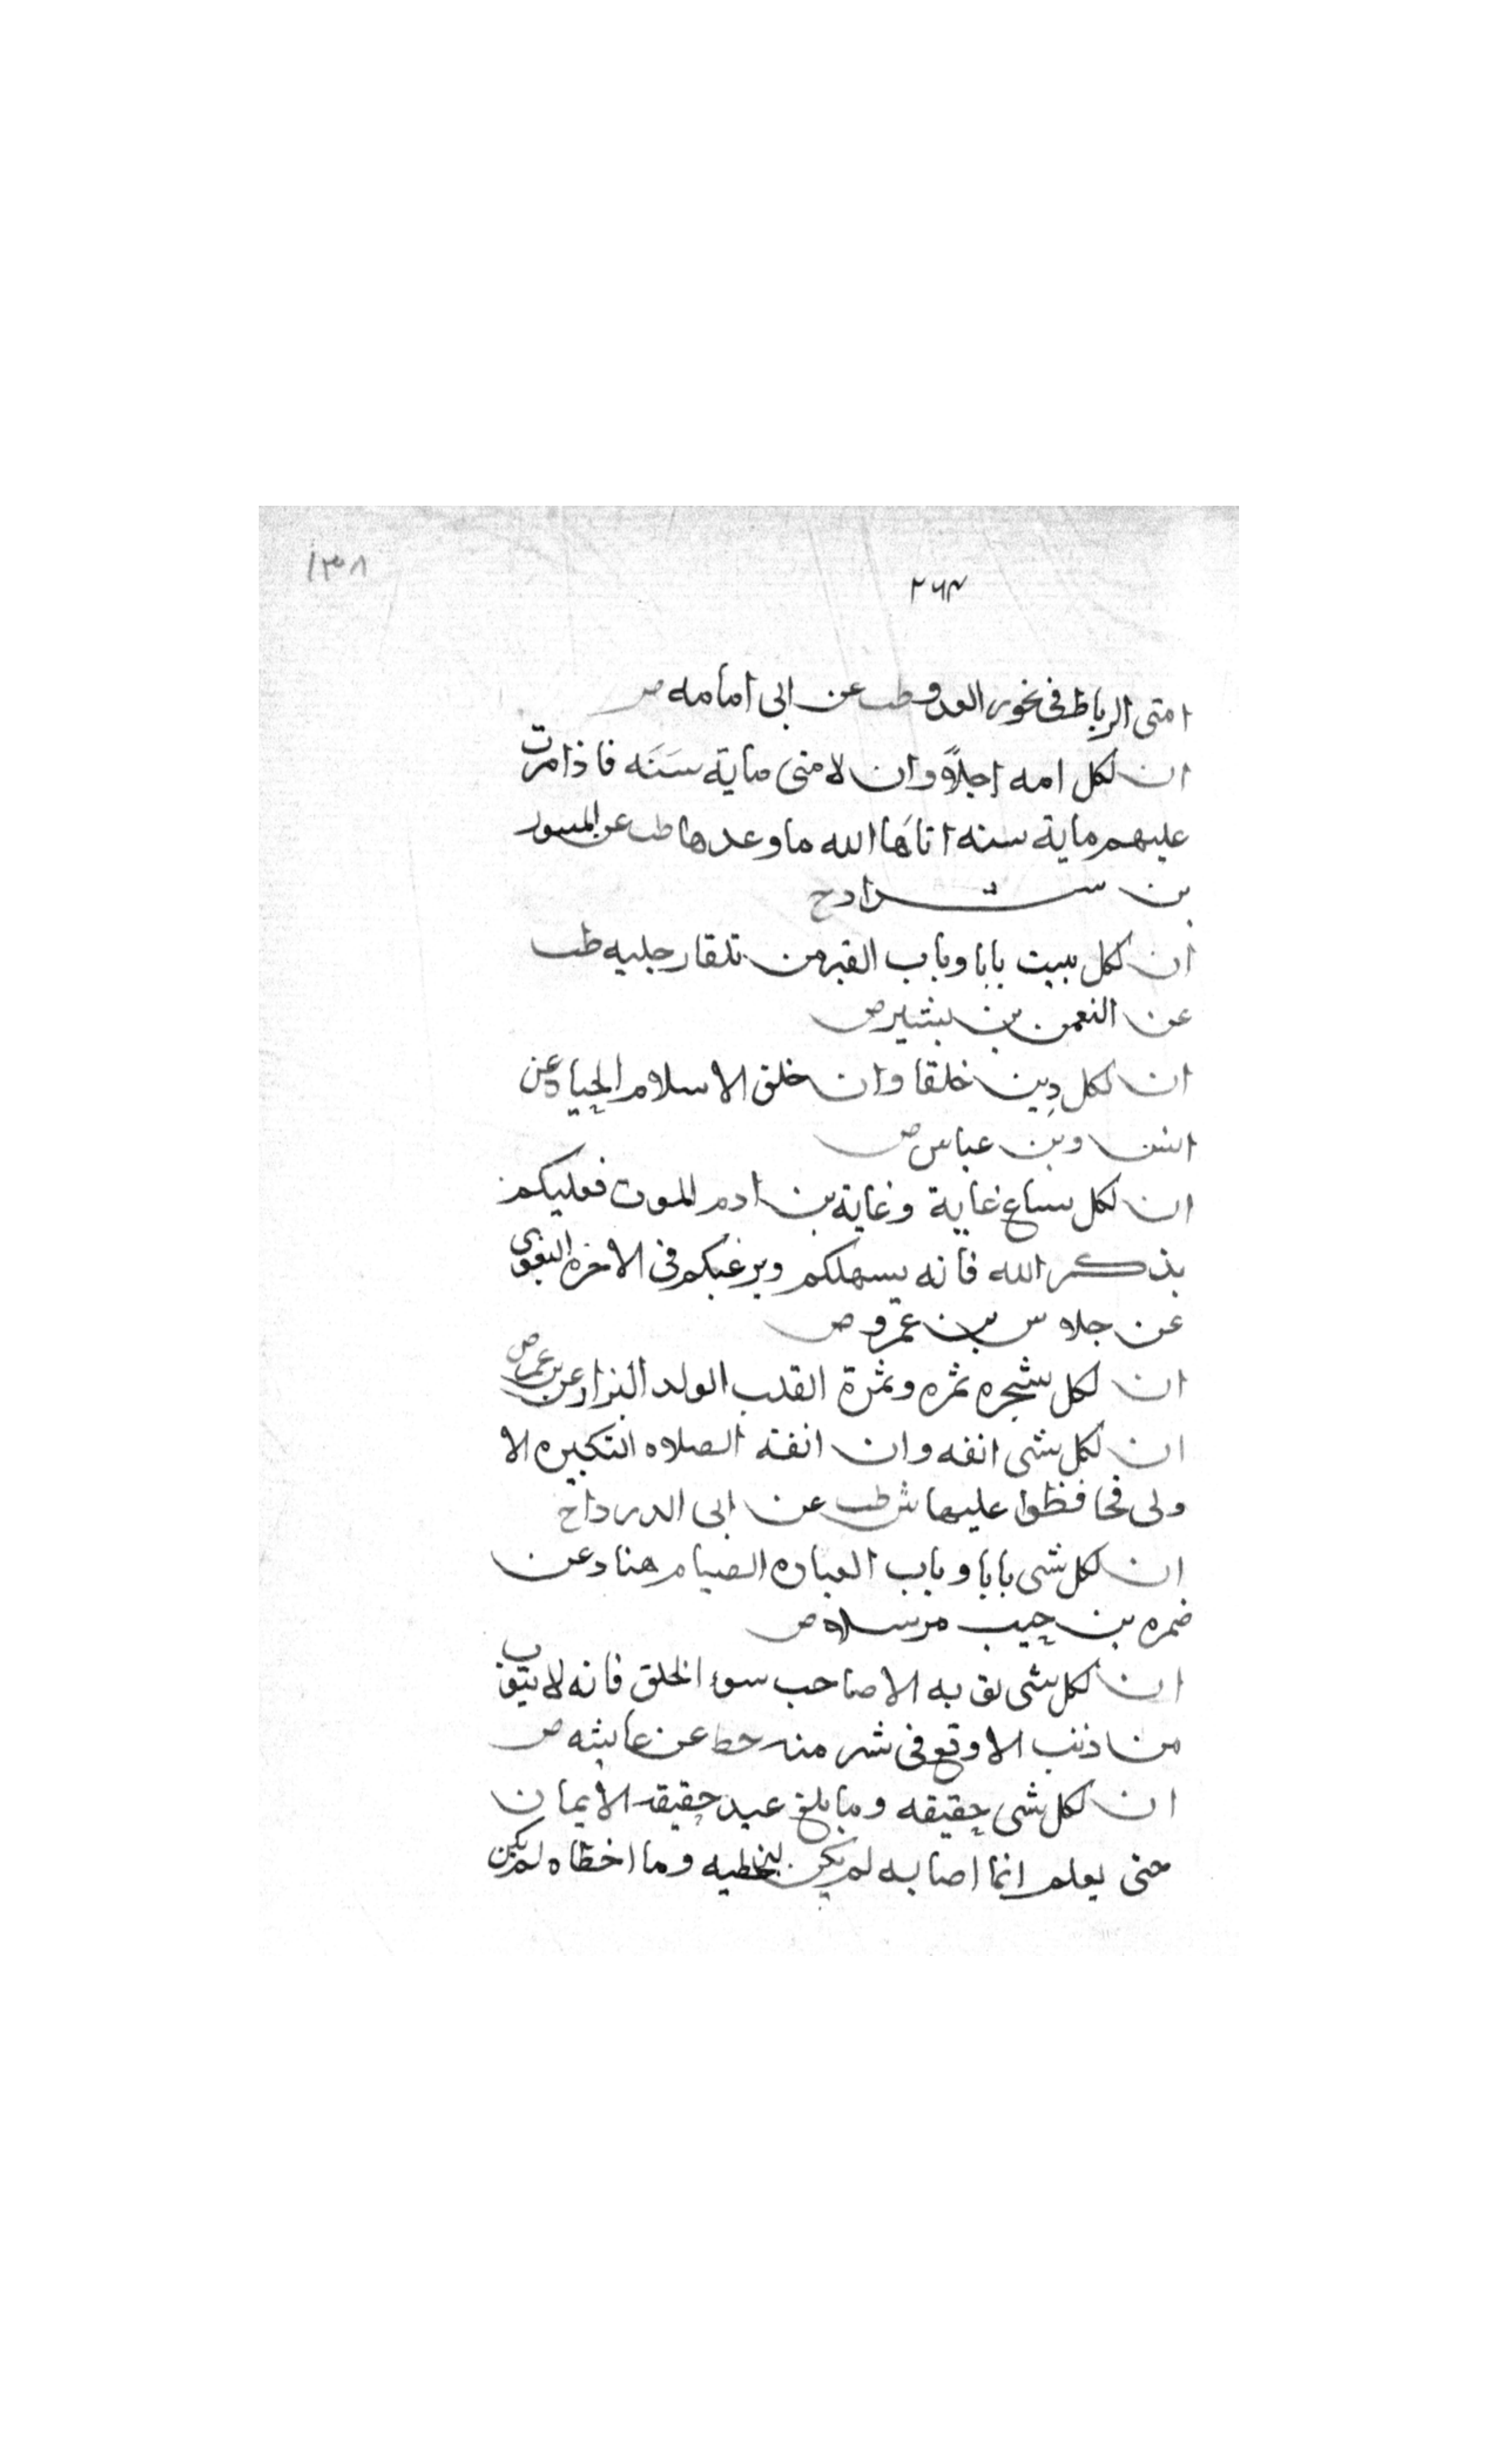 ١٣٨
٢٦٣
امتى الرباط فى نحور العدو طب عن ابى امامه ض
ان لكل امه اجلاً وان لامتى ماية سَنَه فاذا مرت
عليهم ماية سنه اتاها الله ما وعدها طب عن المسور
بن شداد ح
ان لكل بيت بابا وباب القبر من تلقا رجليه طب
عن النعمن بن بشير ض
ان لكل دِين خلقا وان خلق الاسلام الحيا ه عن
انس وبن عباس ض
ان لكل ساع غاية وغاية بن ادم الموت فعليكم
بذكر الله فانه يسهلكم ويرغبكم فى الاخره البغوى
عن جلاس بن عمرو ض
ان لكل شجره ثمره وثمرة القلب الولد البزار عن بن عمر ض
ان لكل شى انفه وان انفة الصلاه التكبيره الا
ولى فحافظوا عليها ش طب عن ابى الدردا ح
ان لكل شى بابا وباب العباده الصيام هناد عن
ضمره بن حبيب مرسلا ض
ان لكل شى توبه الا صاحب سوء الخلق فانه لا يتوب
من ذنب الا وقع فى شر منه خط عن عايشه ض
ان لكل شى حقيقه وما بلغ عبد حقيقه الايمان
حتى يعلم انما اصابه لم يكن ليخطيه وما اخطاه لم يكن